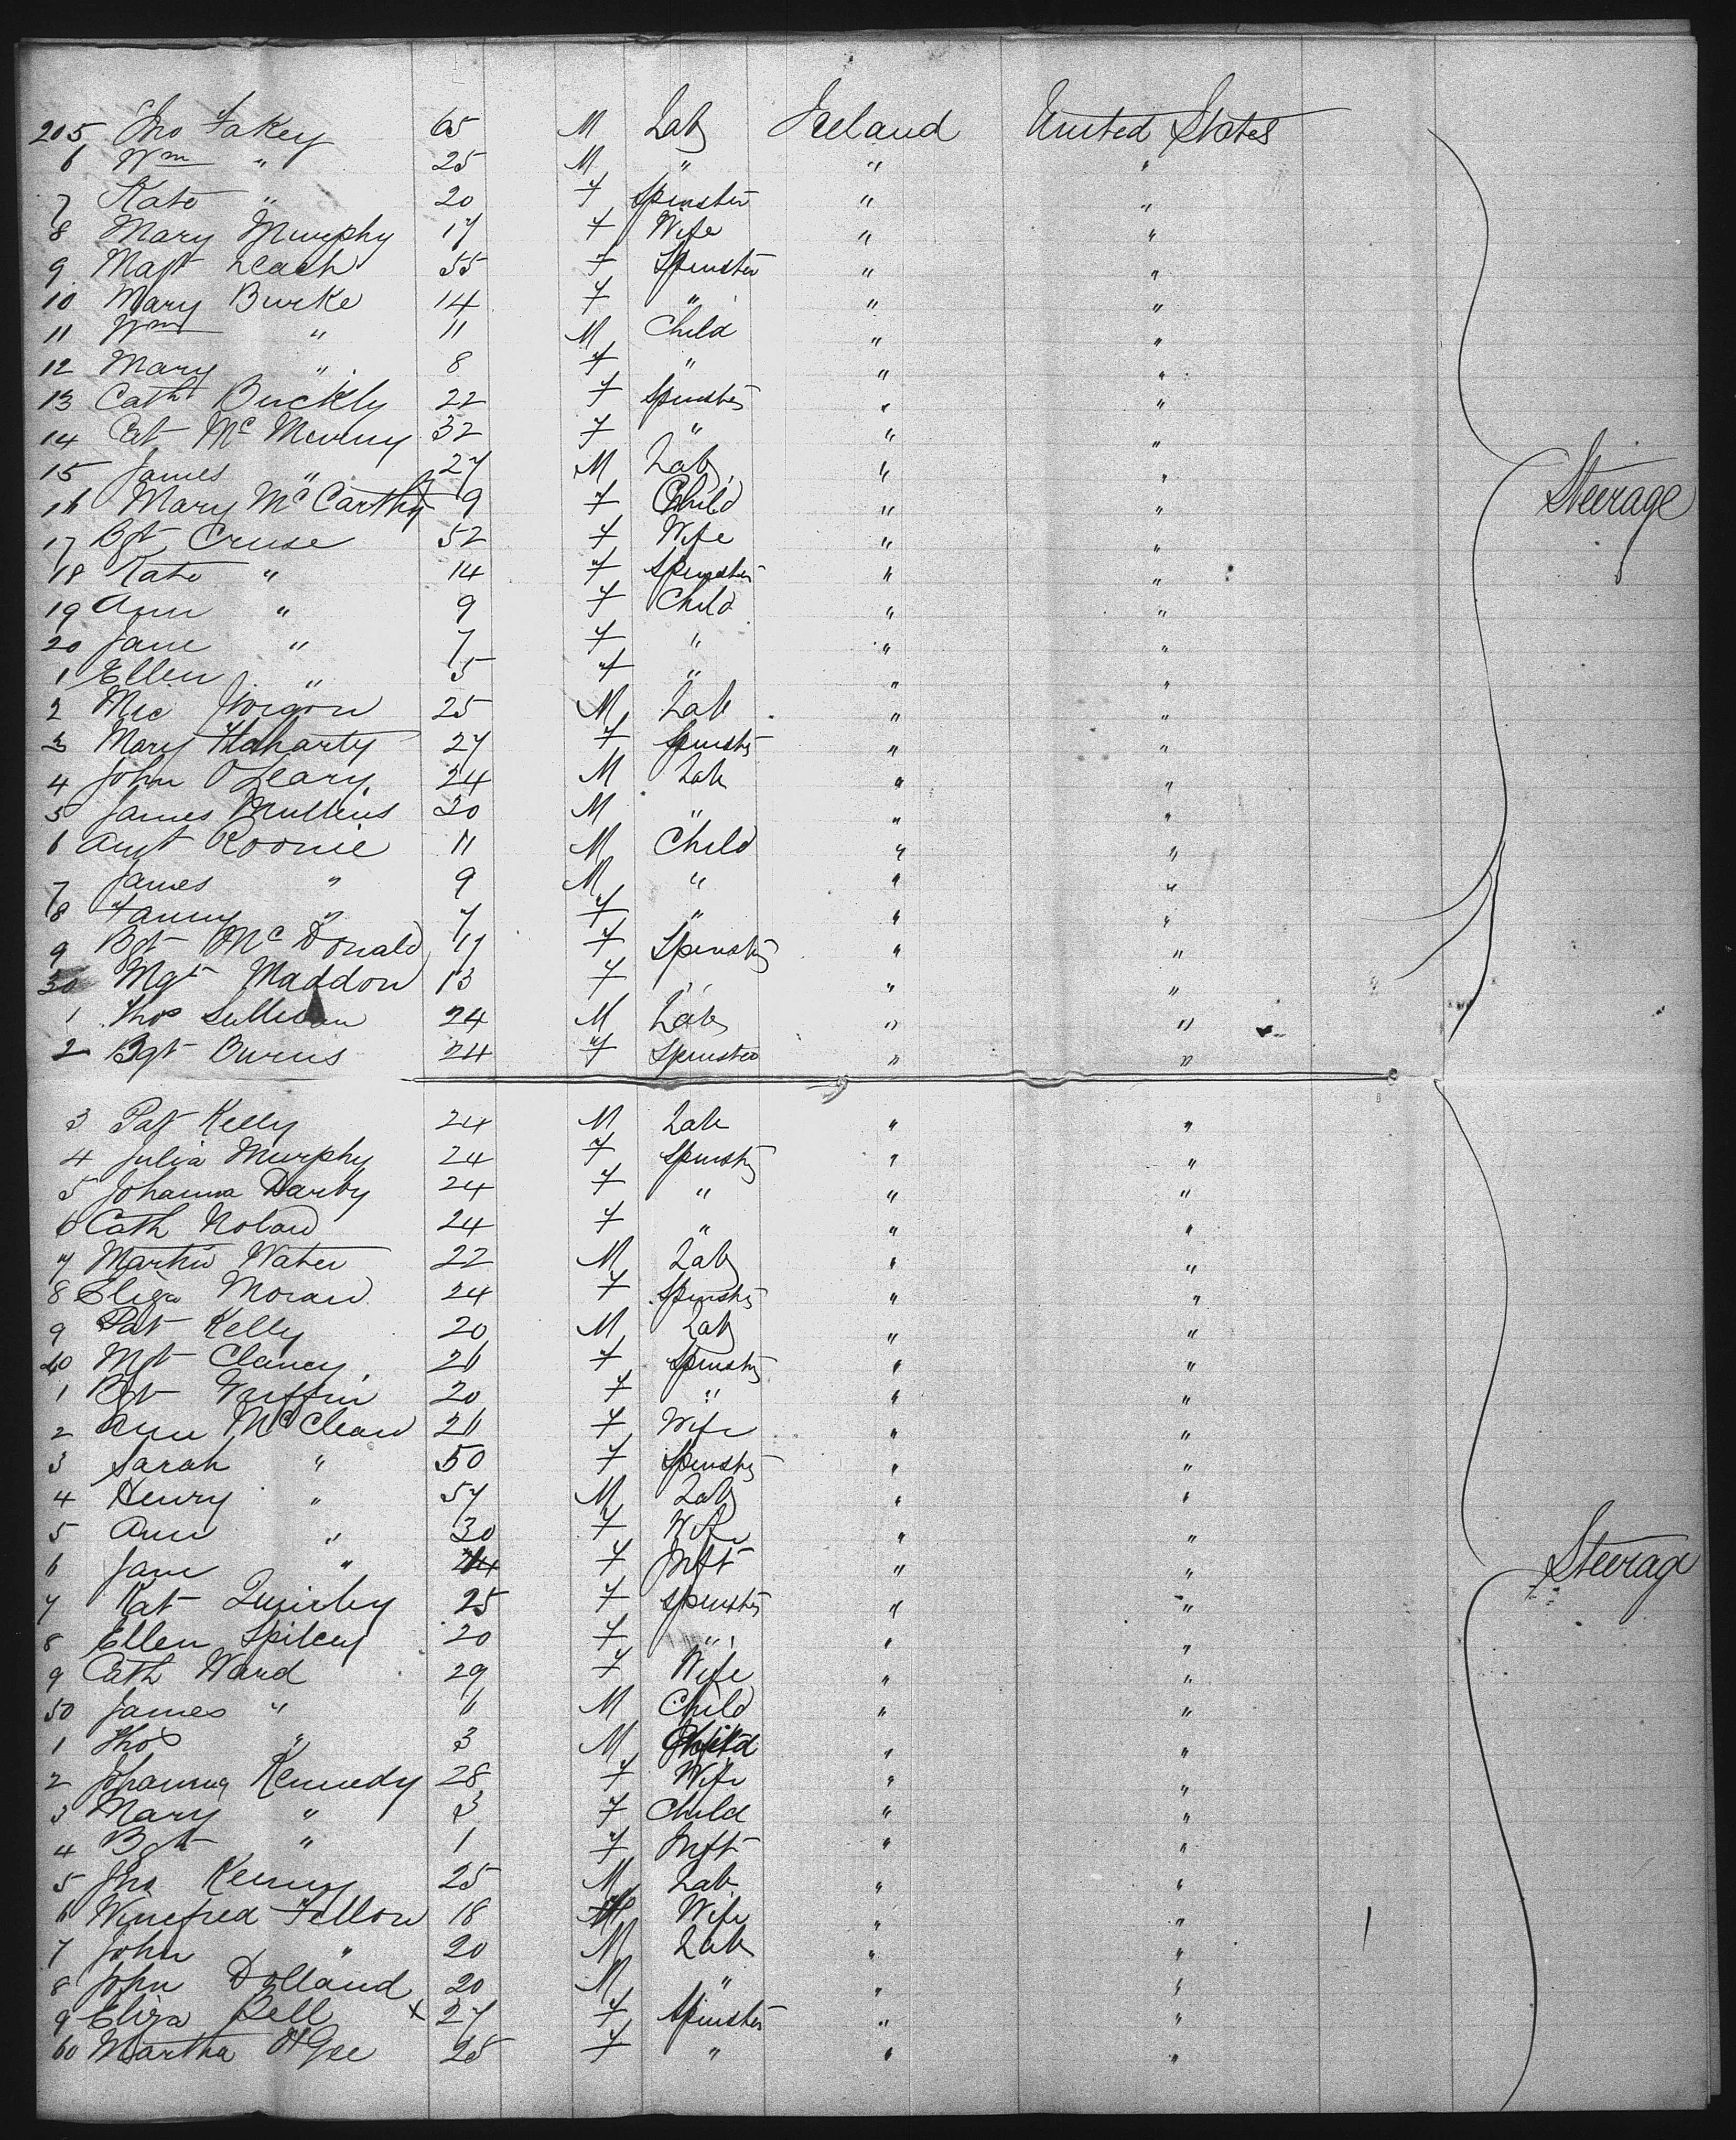 205 Jno Fakey 65 M Lab Ireland United States
6 Wm " 25 M " " "
7 Kate " 20 F Spinster " "
8 Mary Murphy 17 F Wife " "
9 Magt Leach 55 F Spinster " "
10 Mary Burke 14 F " " "
11 Wm " 11 M Child " "
12 Mary " 8 F " " "
13 Cath Buckly 22 F Spinster " "
14 Cat Mc 32 F " " "
15 James " 27 M Lab " "
16 Mary McCarthy 9 F Child " "
Steerage
17 Bgt Cruse 52 F Wife " "
18 Kate " 14 F Spinster " "
19 Ann " 9 F Child " "
20 Jane " 7 F " " "
1 Ellen " 5 F " " "
2 Mic 25 M Lab " "
3 Mary Flaharty 27 F Spinster " "
4 John OLeary 24 M Lab " "
5 James Mullins 30 M " " "
6 Aust Roonie 11 M Child " "
7 James " 9 M " " "
8 Fanny " 7 F " " "
9 Bgt McDonald 17 F Spinster " "
30 Mgt Maddon 13 F " " "
1 Thos Sullivan 24 M Lab " "
2 Bgt Burns 24 F Spinster " "
3 Pat Kelly 24 M Lab " "
4 Julia Murphy 24 F Spinster " "
5 Johanna Darby 24 F " " "
6 Cath Nolan 24 F " " "
7 Martin Water 22 M Lab " "
8 Eliza Moran 24 F Spinster " "
9 Pat Kelly 20 M Lab " "
40 Mgt Clancy 21 F Spinster " "
1 Bgt Griffin 20 F " " "
2 Ann McClean 21 F Wife " "
3 Sarah " 50 F Spinster " "
4 Henry " 57 M Lab " "
5 Ann " 30 F Wife " "
6 Jane " F Inft " "
Steerage
7 Kat Quirley 25 F Spinster " "
8 Ellen Spilcey 20 F " " "
9 Cath Ward 29 F Wife " "
50 James " 6 M Child " "
1 Thos " 3 M Child " "
2 Johanna Kennedy 28 F Wife " "
3 Mary " 3 F Child " "
4 Bgt " 1 F Inft " "
5 Jno Kenny 25 M Lab " "
6 Winefred Fallon 18 Wife " "
7 John " 20 M Lab " "
8 John Dolland 20 M " " "
9 Eliza Bell x 27 F Spinster " "
60 Martha 25 F " " "